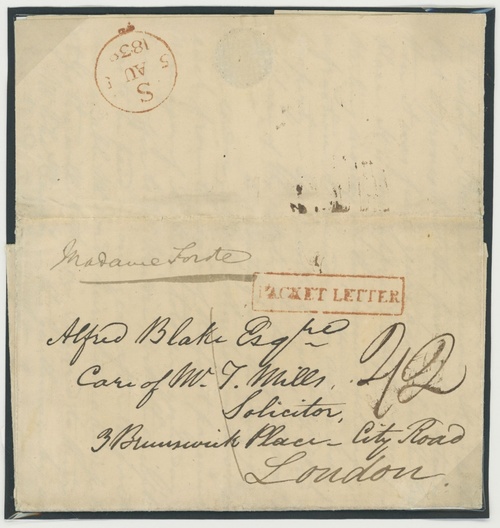 S
AU 5
1838
Madame Forste
PACKET LETTER
Alfred Blake Esqre
Care of Mr. T. Mills,
Solicitor,
3 Brunswick Place - City Road
London.